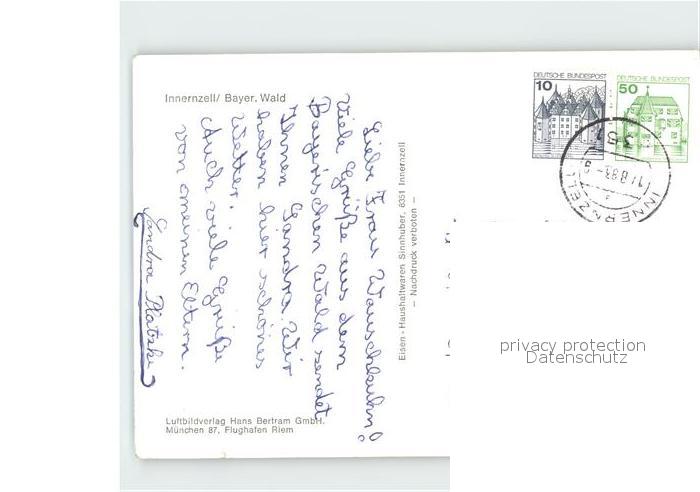 Innernzell/ Bayer. Wald
Liebe Frau
Viele Grüße aus dem
Bayerischen Wald sendet
Ihnen Sandra. Wir
haben hier schönes
Wetter. 
Auch viele Grüße
von meinen Eltern.
Sandra
Luftbildverlag Hans Bertram GmbH.
München 87, Flughafen Riem
Eisen - Haushaltwaren Sinnhuber, 8351 Innernzell
— Nachdruck verboten —
DEUTSCHE BUNDESPOST
10
DEUTSCHE BUNDESPOST
50
INNERNZELL
privacy protection
Datenschutz